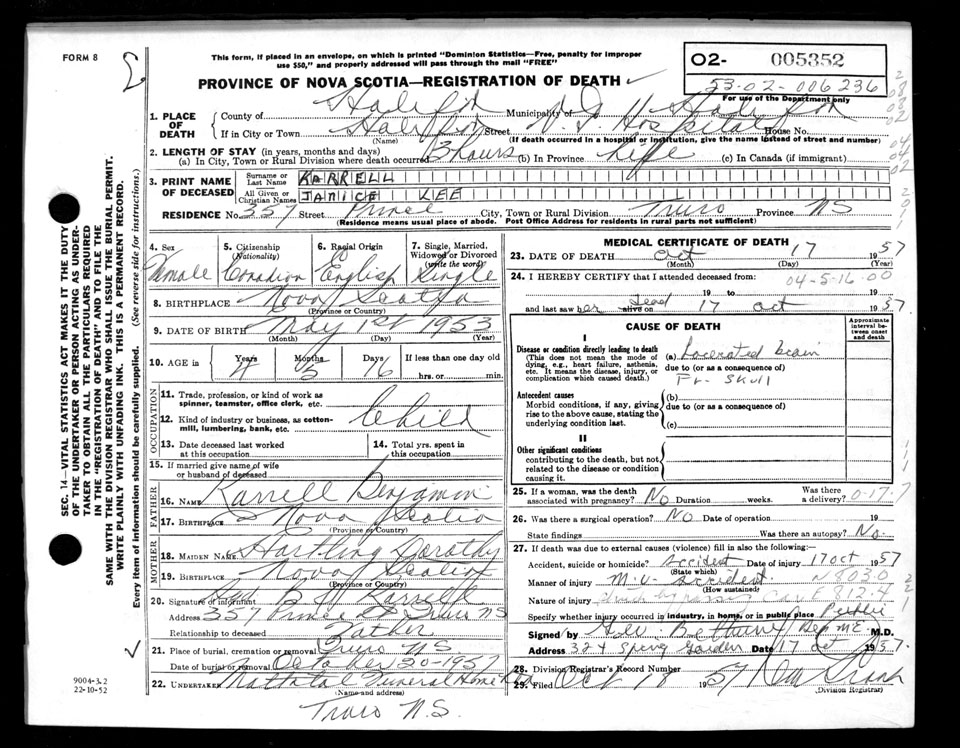 FORM 8
This form, if placed in an envelope, on which is printed "Dominion Statistics—Free, penalty for improper
use $50," and properly addressed will pass through the mail "FREE"
PROVINCE OF NOVA SCOTIA—REGISTRATION OF DEATH
O2- 005352
53-02-006236
For use of the Department only
1. PLACE OF DEATH
County of Halifax Municipality of
If in City or Town Halifax Street V. G. Hospital House No.
(Name) (If death occurred in a hospital or institution, give the name instead of street and number)
2. LENGTH OF STAY (in years, months and days)
(a) In City, Town or Rural Division where death occurred 3 hours (b) In Province Life (c) In Canada (if immigrant)
3. PRINT NAME OF DECEASED
Surname or Last Name KARRELL
All Given or Christian Names JANICE LEE
RESIDENCE No. 357 Street Prince City, Town or Rural Division Truro Province NS
(Residence means usual place of abode. Post Office Address for residents in rural parts not sufficient)
4. Sex Female
5. Citizenship (Nationality) Canadian
6. Racial Origin English
7. Single, Married, Widowed or Divorced (write the word) Single
8. BIRTHPLACE Nova Scotia
(Province or Country)
9. DATE OF BIRTH May 1st 1953
(Month) (Day) (Year)
10. AGE in Years 4 Months 5 Days 16 If less than one day old
hrs. or min.
OCCUPATION
11. Trade, profession, or kind of work as spinner, teamster, office clerk, etc.
12. Kind of industry or business, as cotton-mill, lumbering, bank, etc. Child
13. Date deceased last worked at this occupation
14. Total yrs. spent in this occupation
15. If married give name of wife or husband of deceased
FATHER
16. NAME Karrell Benjamin
17. BIRTHPLACE Nova Scotia
(Province or Country)
MOTHER
18. MAIDEN NAME Hartling Dorothy
19. BIRTHPLACE Nova Scotia
(Province or Country)
20. Signature of informant B Karrell
Address 357 Prince St Truro NS
Relationship to deceased Father
21. Place of burial, cremation or removal Truro N.S.
Date of burial or removal October 20-1957
22. UNDERTAKER Mattatal Funeral Home Ltd
(Name and address)
Truro N.S.
MEDICAL CERTIFICATE OF DEATH
23. DATE OF DEATH Oct 17 1957
(Month) (Day) (Year)
24. I HEREBY CERTIFY that I attended deceased from:
04-5-16-00
19 to 19
and last saw her dead alive on 17 Oct 1957
CAUSE OF DEATH
Approximate interval between onset and death
I
Disease or condition directly leading to death
(This does not mean the mode of dying, e.g., heart failure, asthenia, etc. It means the disease, injury, or complication which caused death.)
(a) Lacerated brain
due to (or as a consequence of)
Fr. Skull
Antecedent causes
Morbid conditions, if any, giving rise to the above cause, stating the underlying condition last.
(b)
due to (or as a consequence of)
(c)
II
Other significant conditions
contributing to the death, but not related to the disease or condition causing it.
25. If a woman, was the death associated with pregnancy? No Duration weeks. Was there a delivery? 0-17.7
26. Was there a surgical operation? No Date of operation 19
State findings Was there an autopsy? No
27. If death was due to external causes (violence) fill in also the following:
Accident, suicide or homicide? Accident Date of injury 17 Oct 1957
(State which)
Manner of injury M.V. accident N8030
(How sustained)
Nature of injury struck by passing car E812.4
Specify whether injury occurred in industry, in home, or in public place Public
Signed by M.D.
Address 324 Spring Garden Date 17 Oct 1957
28. Division Registrar's Record Number
29. Filed Oct 18 1957
(Division Registrar)
SEC. 14—VITAL STATISTICS ACT MAKES IT THE DUTY
OF THE UNDERTAKER OR PERSON ACTING AS UNDER-
TAKER TO OBTAIN ALL THE PARTICULARS REQUIRED
IN THE "REGISTRATION OF DEATH" AND TO FILE THE
SAME WITH THE DIVISION REGISTRAR WHO SHALL ISSUE THE BURIAL PERMIT.
WRITE PLAINLY WITH UNFADING INK. THIS IS A PERMANENT RECORD.
Every item of information should be carefully supplied. (See reverse side for instructions.)
9004-3.2
22-10-52